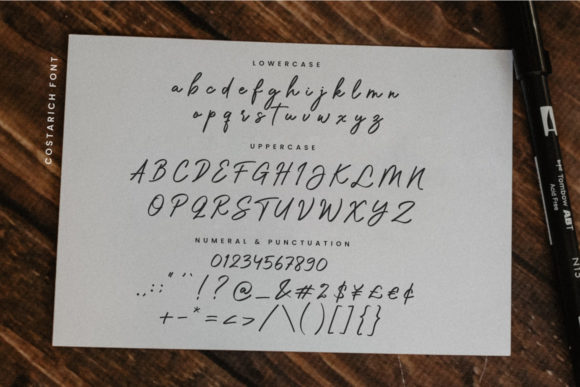 COSTARICH FONT
LOWERCASE
abcdefghijklmn
opqrstuvwxyz
UPPERCASE
ABCDEFGHIJKLMN
OPQRSTUVWXYZ
NUMERAL & PUNCTUATION
01234567890
.,:;"'`!?@_&#2$¥£€¢
+-*=<>/\()[]{}
Tombow ABT
Acid Free
N15